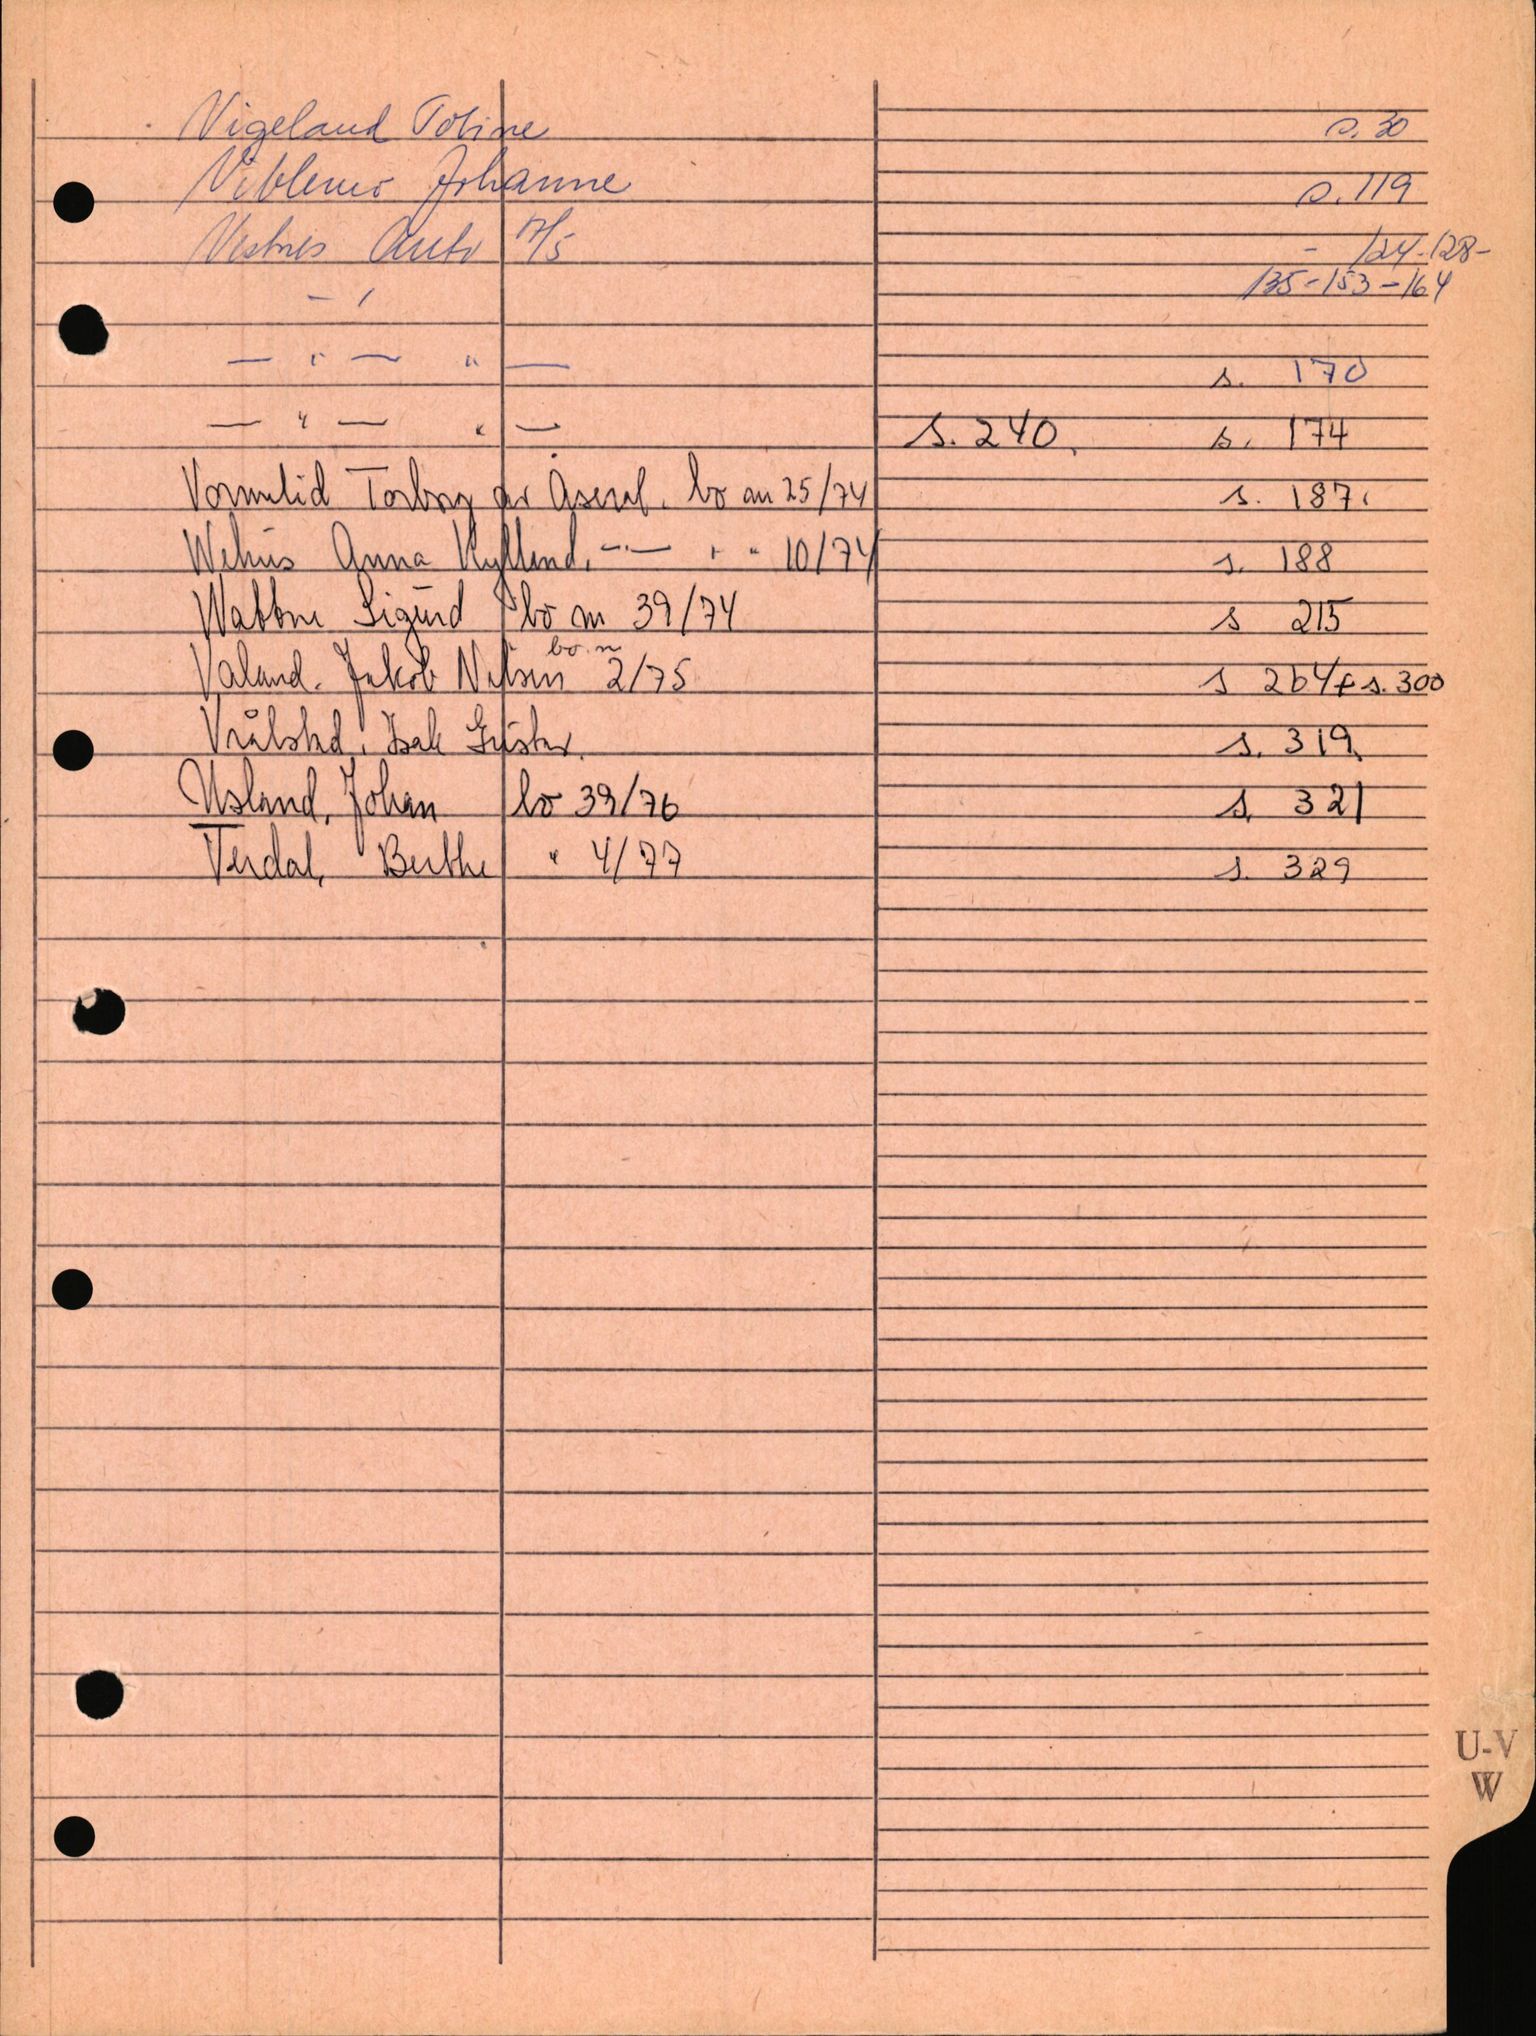 Vigeland Tobine s. 30
Viblemo Johanne s. 119
Vestnes Auto A/S - 124-128-
- " 135-153-164
— " — " — s. 170
— " — " — s. 240. s. 174
Vormelid Torborg av Åseral. bo nr 25/74 s. 187.
Wehus Anna Kylland, —"— " " 10/74 s. 188
Wattne Sigurd bo nr 39/74 s 215
bo. n
Valand. Jakob Nilsen 2/75 s 264 + s. 300
Vrålstad, Isak Gustav. s. 319.
Usland, Johan bo 39/76 s. 321
Terdal, Berthe " 4/77 s. 329
U-V
W